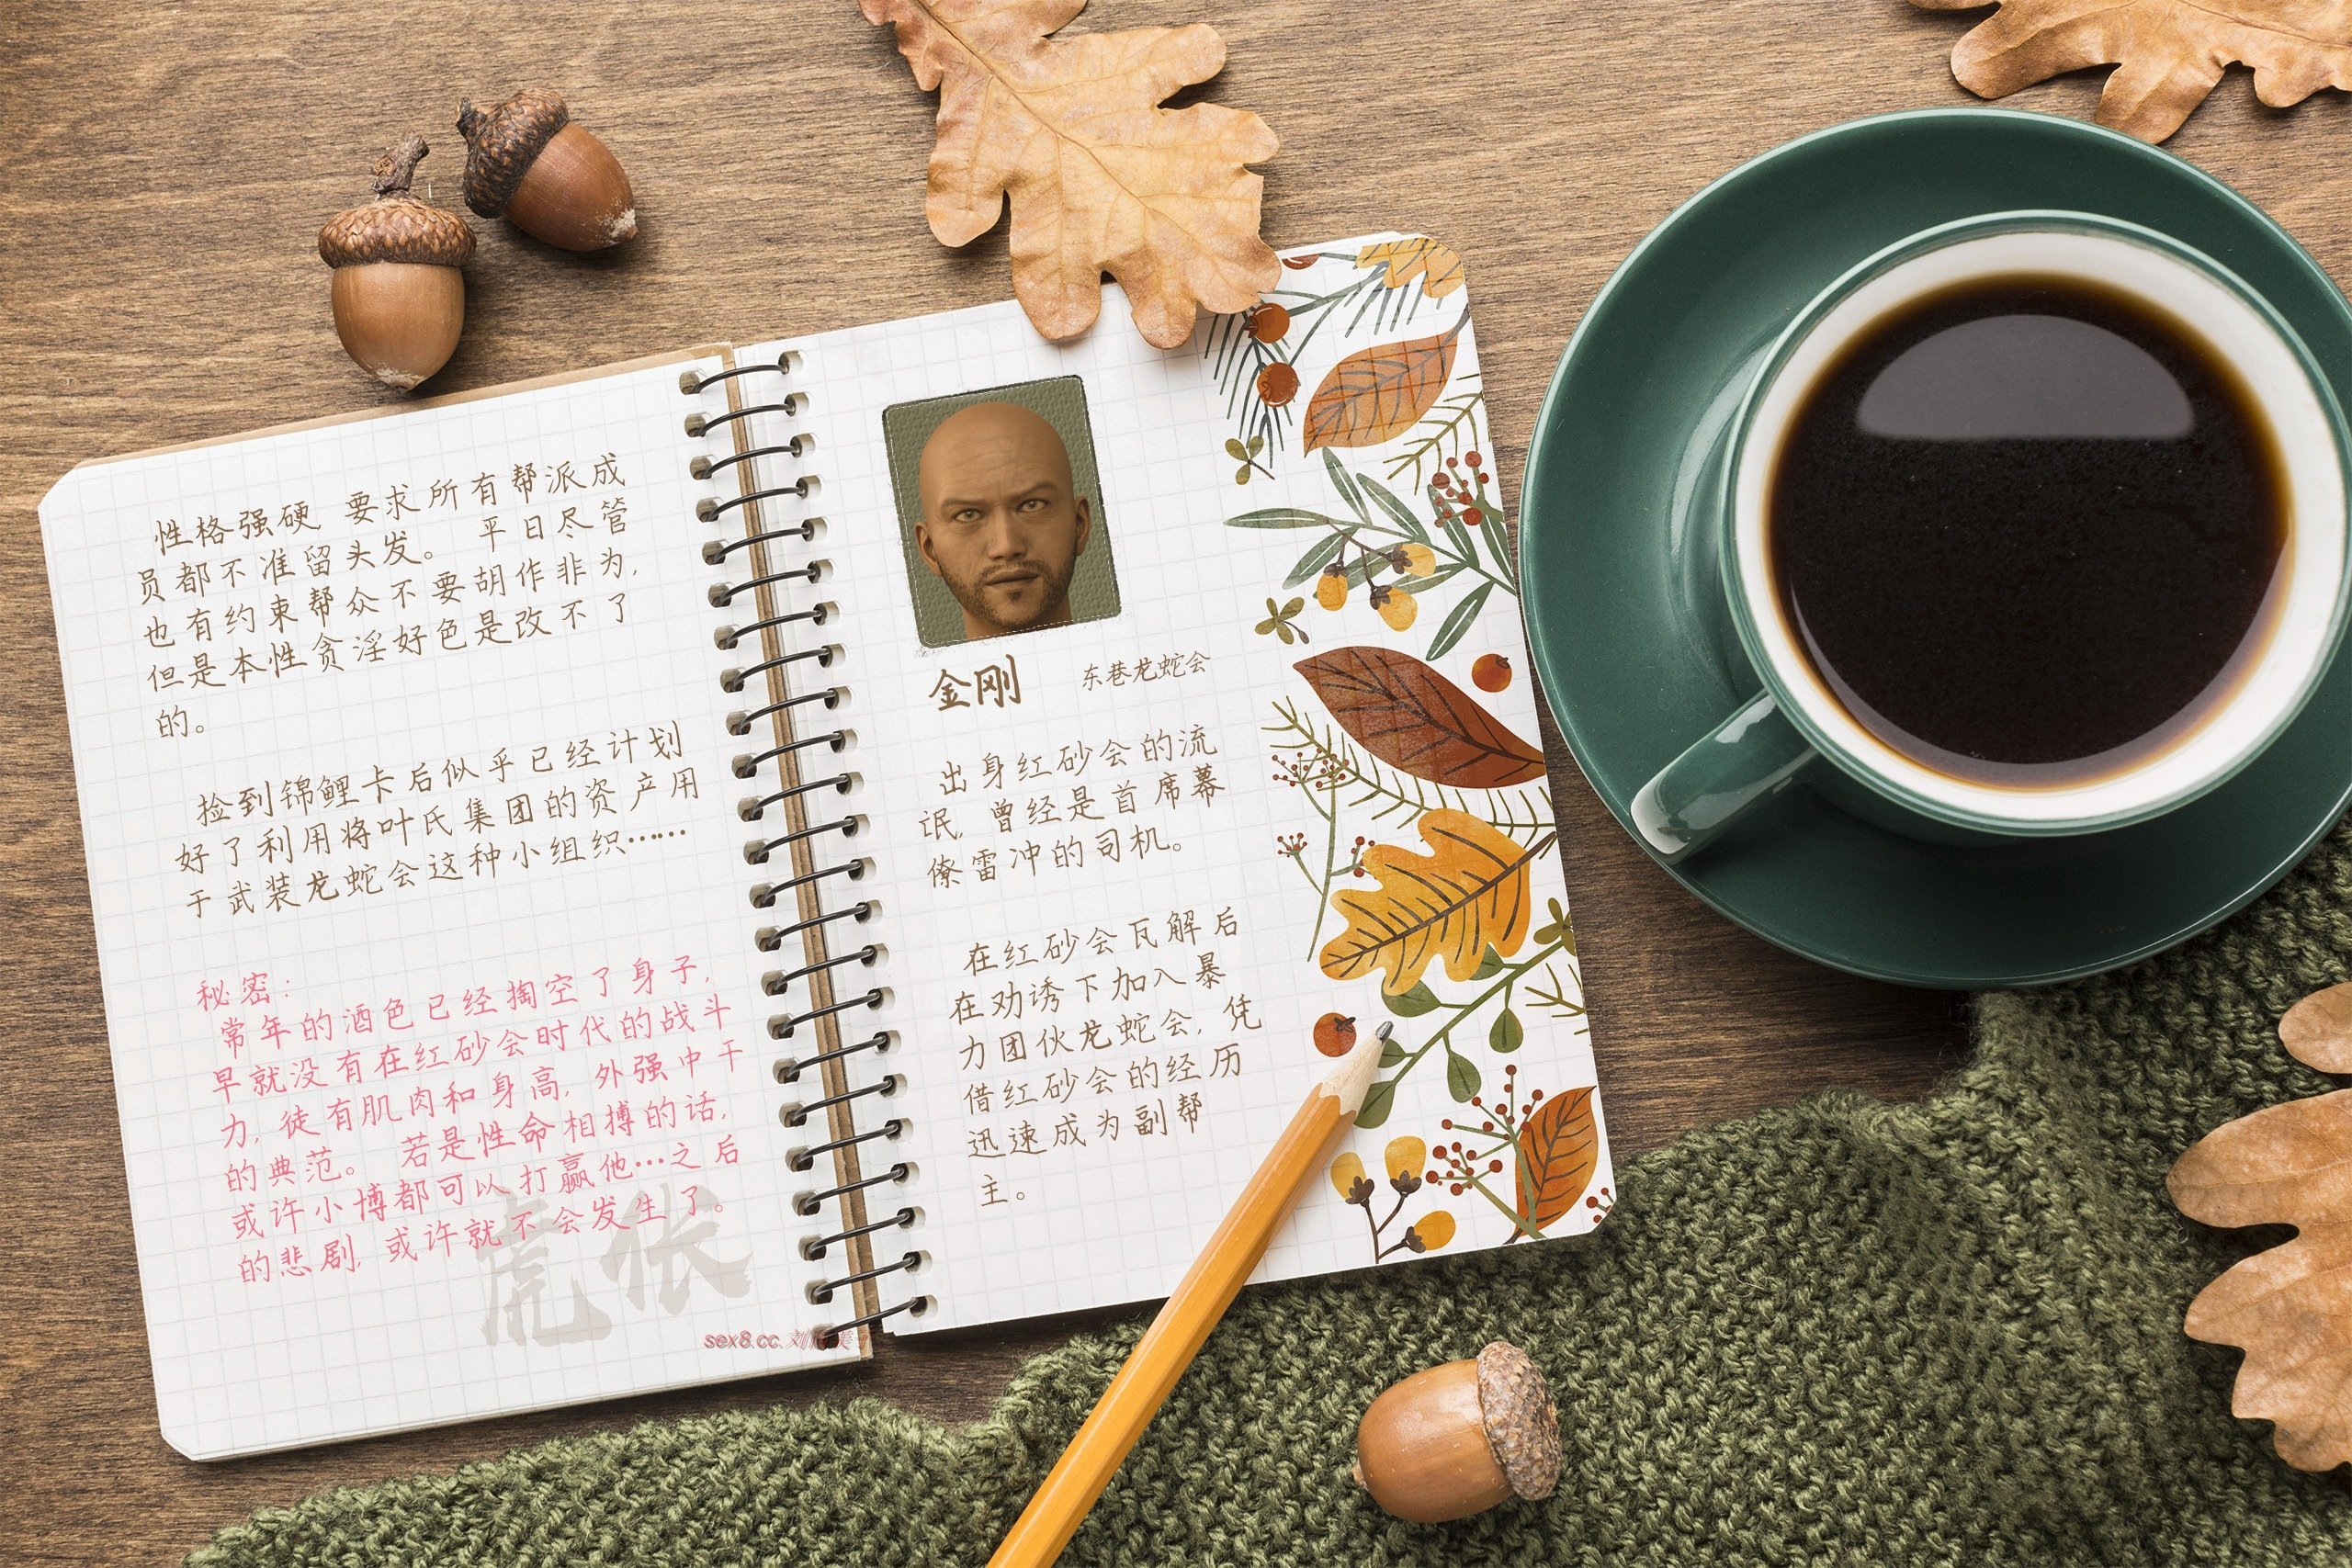 性格强硬 要求所有帮派成
员都不准留头发。 平日尽管
也有约束帮众不要胡作非为,
但是本性贪淫好色是改不了
的。
捡到锦鲤卡后似乎已经计划
好了利用将叶氏集团的资产用
于武装龙蛇会这种小组织……
秘密:
常年的酒色已经掏空了身子,
早就没有在红砂会时代的战斗
力, 徒有肌肉和身高, 外强中干
的典范。 若是性命相搏的话,
或许小博都可以打赢他…之后
的悲剧, 或许就不会发生了。
虎伥
sex8.cc.刘
金刚 东巷龙蛇会
出身红砂会的流
氓, 曾经是首席幕
僚雷冲的司机。
在红砂会瓦解后
在劝诱下加入暴
力团伙龙蛇会, 凭
借红砂会的经历
迅速成为副帮
主。